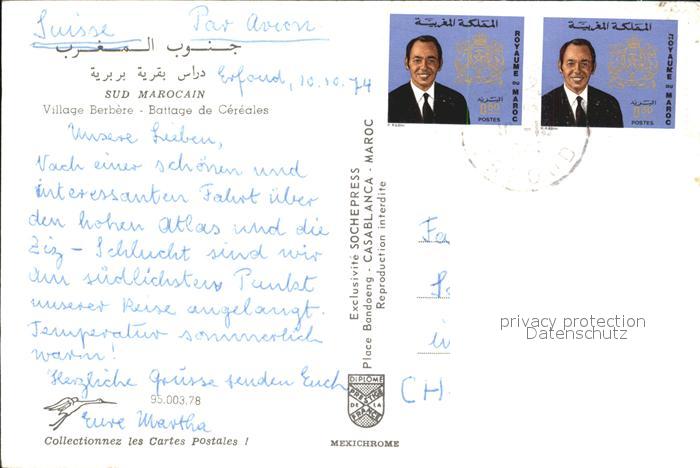 Suisse Par Avion
جنوب المغرب
دراس بقرية بربرية
Erfoud, 10.10.74
SUD MAROCAIN
Village Berbère - Battage de Céréales
Unsere Lieben,
Nach einer schönen und
interessanten Fahrt über
den hohen Atlas und die
Ziz - Schlucht sind wir
am südlichsten Punkt
unserer Reise angelangt.
Temperatur sommerlich
warm!
Herzliche Grüsse senden Euch
95.003.78
Eure Martha
Collectionnez les Cartes Postales !
Exclusivité SOCHEPRESS
Place Bandoeng - CASABLANCA - MAROC
Reproduction interdite
DIPLOME
PRESTIGE
DE LA
FRANCE
MEXICHROME
المملكة المغربية
ROYAUME DU MAROC
البريد
0.50
POSTES
المملكة المغربية
ROYAUME DU MAROC
البريد
0.50
POSTES
CH
privacy protection
Datenschutz